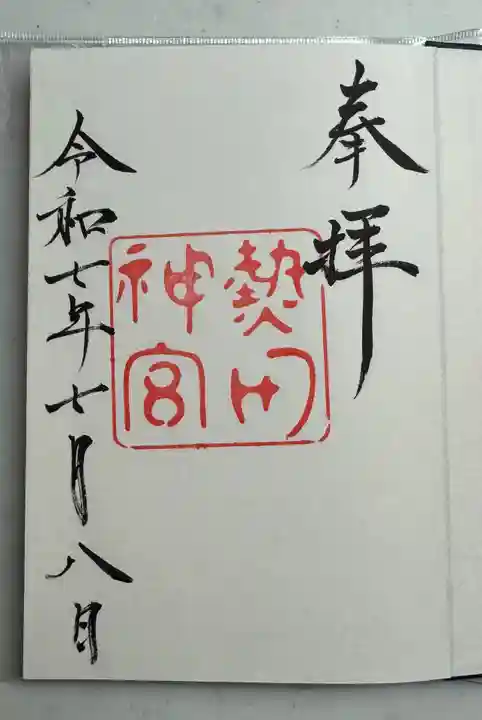 奉拝
熱田
神宮
令和七年七月八日